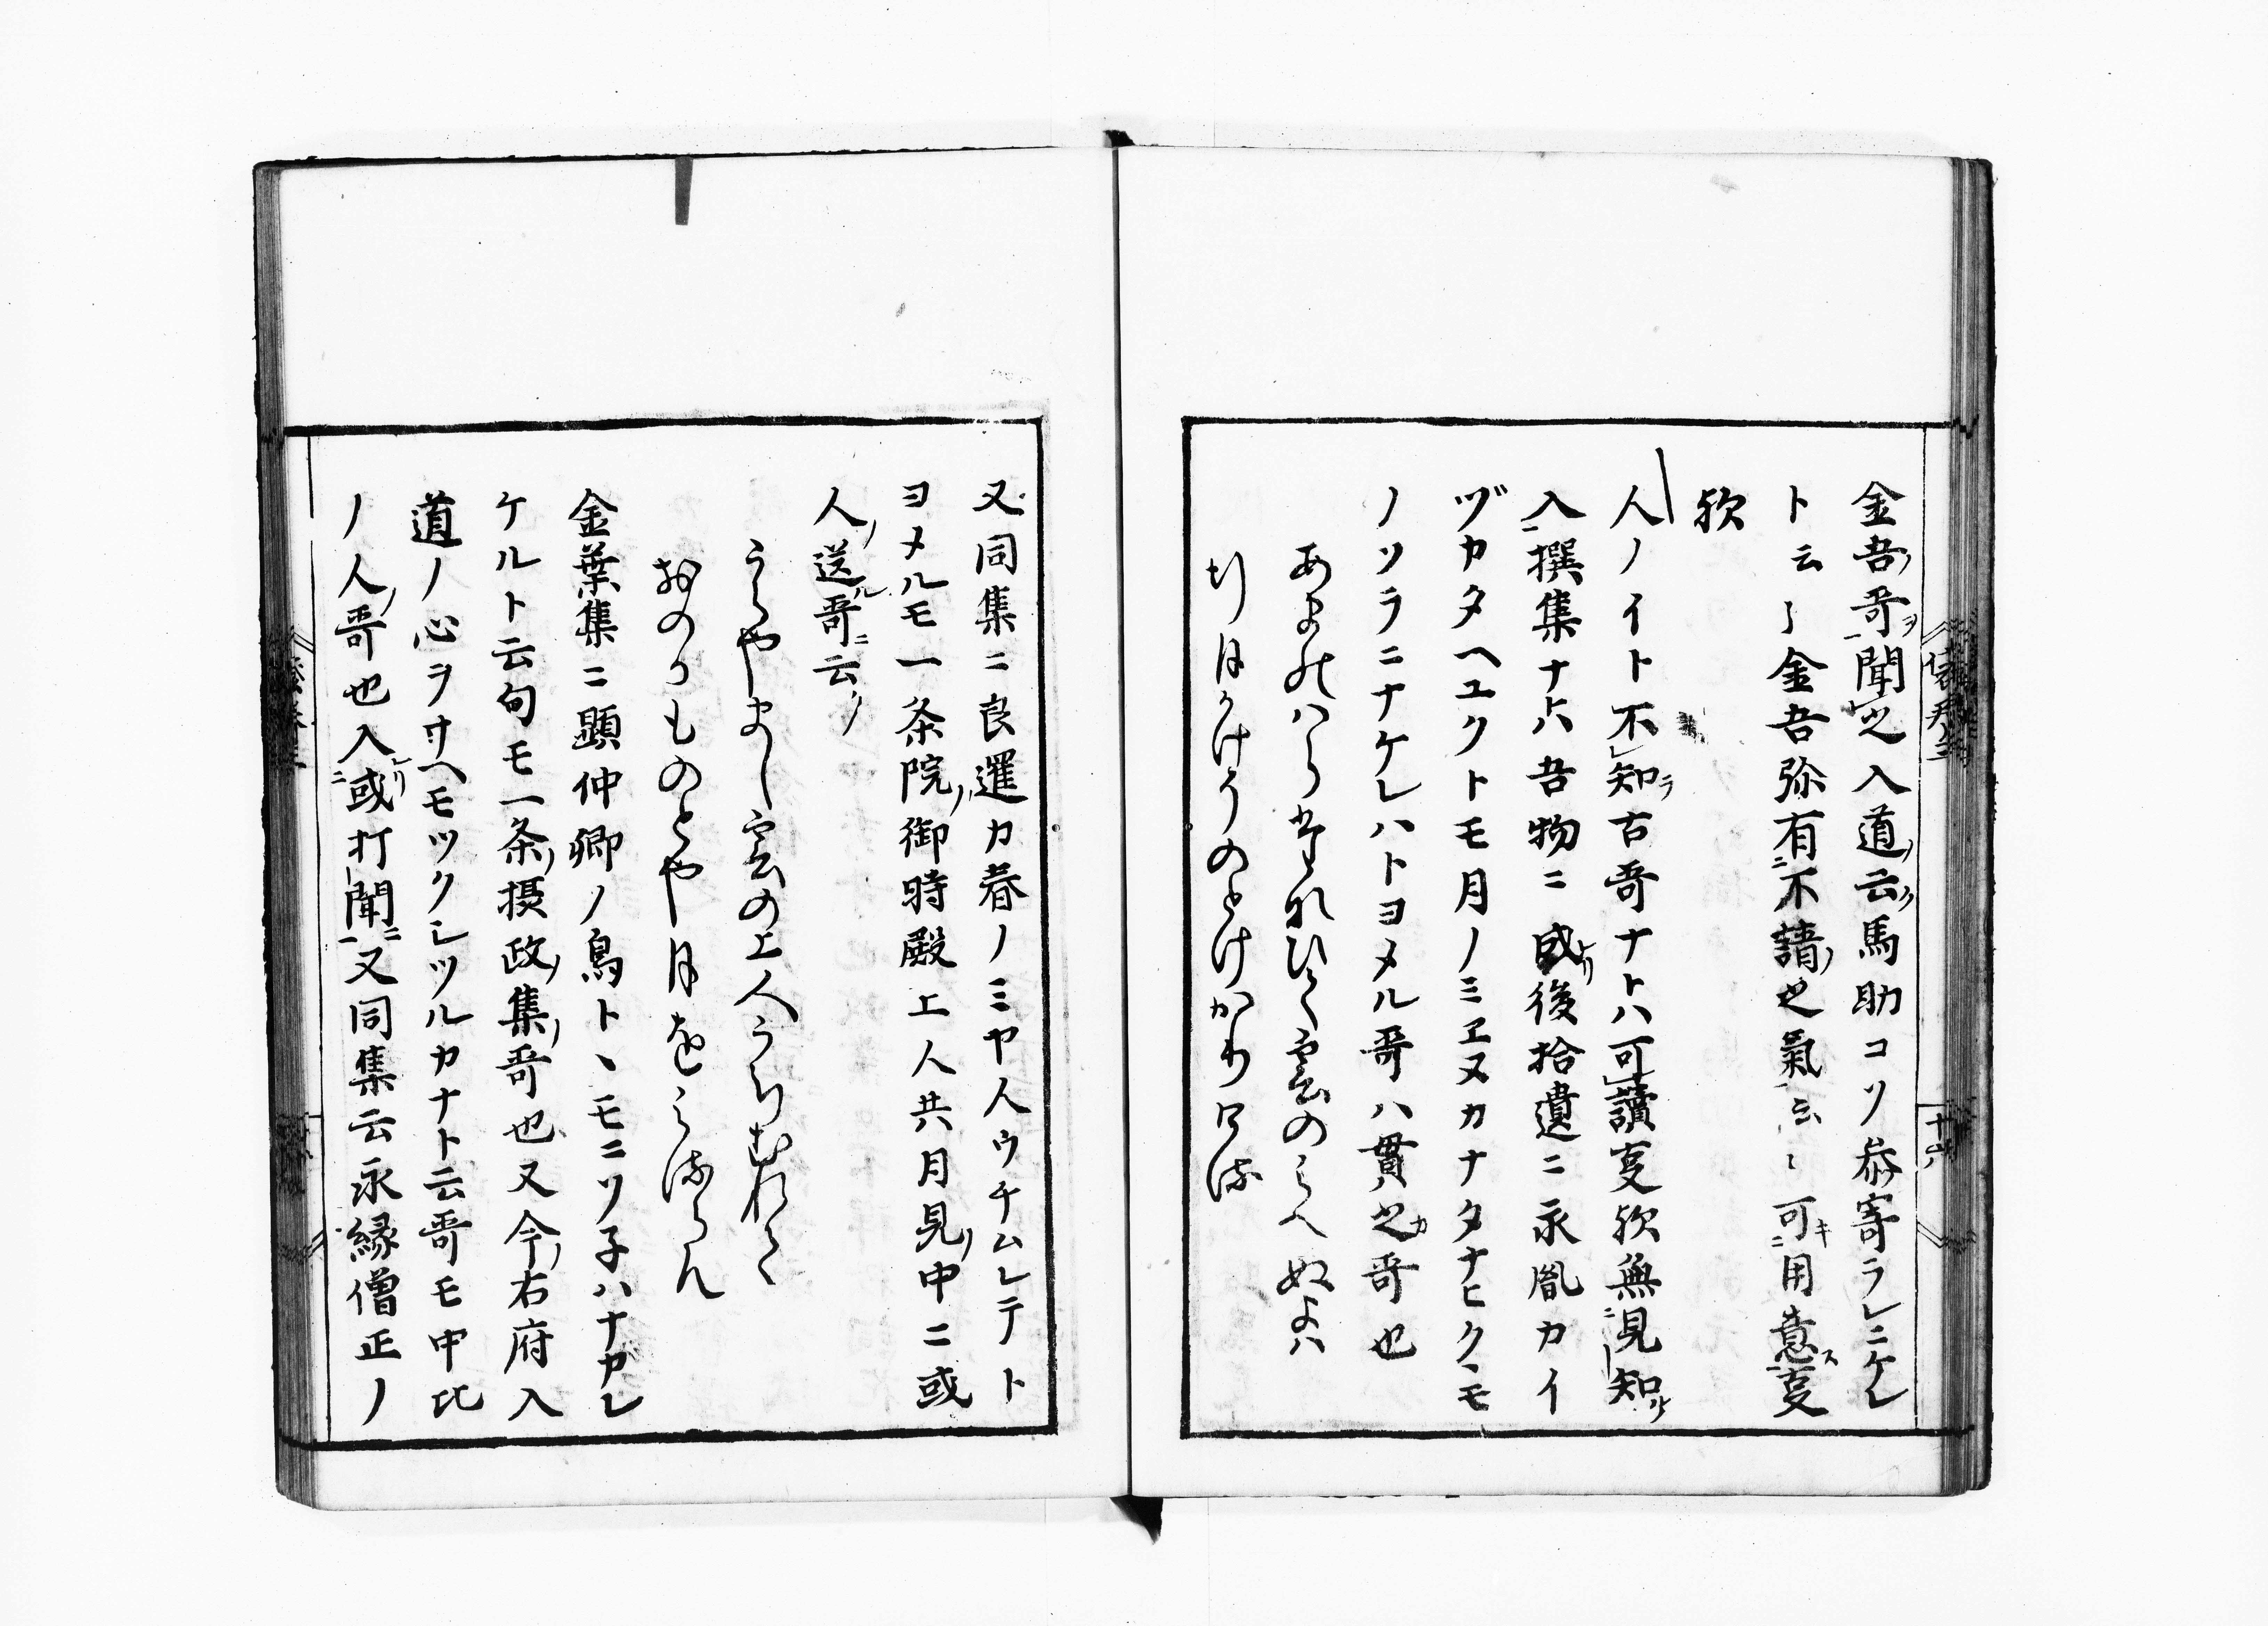 金吾ノ哥ヲ聞之入道ノ云ク馬助コソ參寄ラレニケレ
ト云々金吾弥有不請ノ之氣云々可キ用意ス事
歟
人ノイト不知ラ古哥ナトハ可讀事歟無見知ル
入撰集ナトハ吾物ニ成リ後拾遺ニ永胤カイ
ヅカタヘユクトモ月ノミエヌカナタナヒクモ
ノソラニナケレハトヨメル哥ハ貫之カ哥也
あまのはらたなひく雲のみえぬよは
行月かけそのとけかりける
又同集ニ良暹カ春ノミヤ人ウチムレテト
ヨメルモ一条院ノ御時殿上人共月見ノ中ニ或
人ノ送ル哥ニ云ク
うらやまし雲の上人うちむれて
おのかものとや月をみるらん
金葉集ニ顕仲卿ノ鳥トヽモニソ子ハナカレ
ケルト云句モ一条ノ摂政ノ集ノ哥也又今ノ右府入
道ノ心ヲサヘモツクシツルカナト云哥モ中比
ノ人ノ哥也入或打聞又同集云永縁僧正ノ